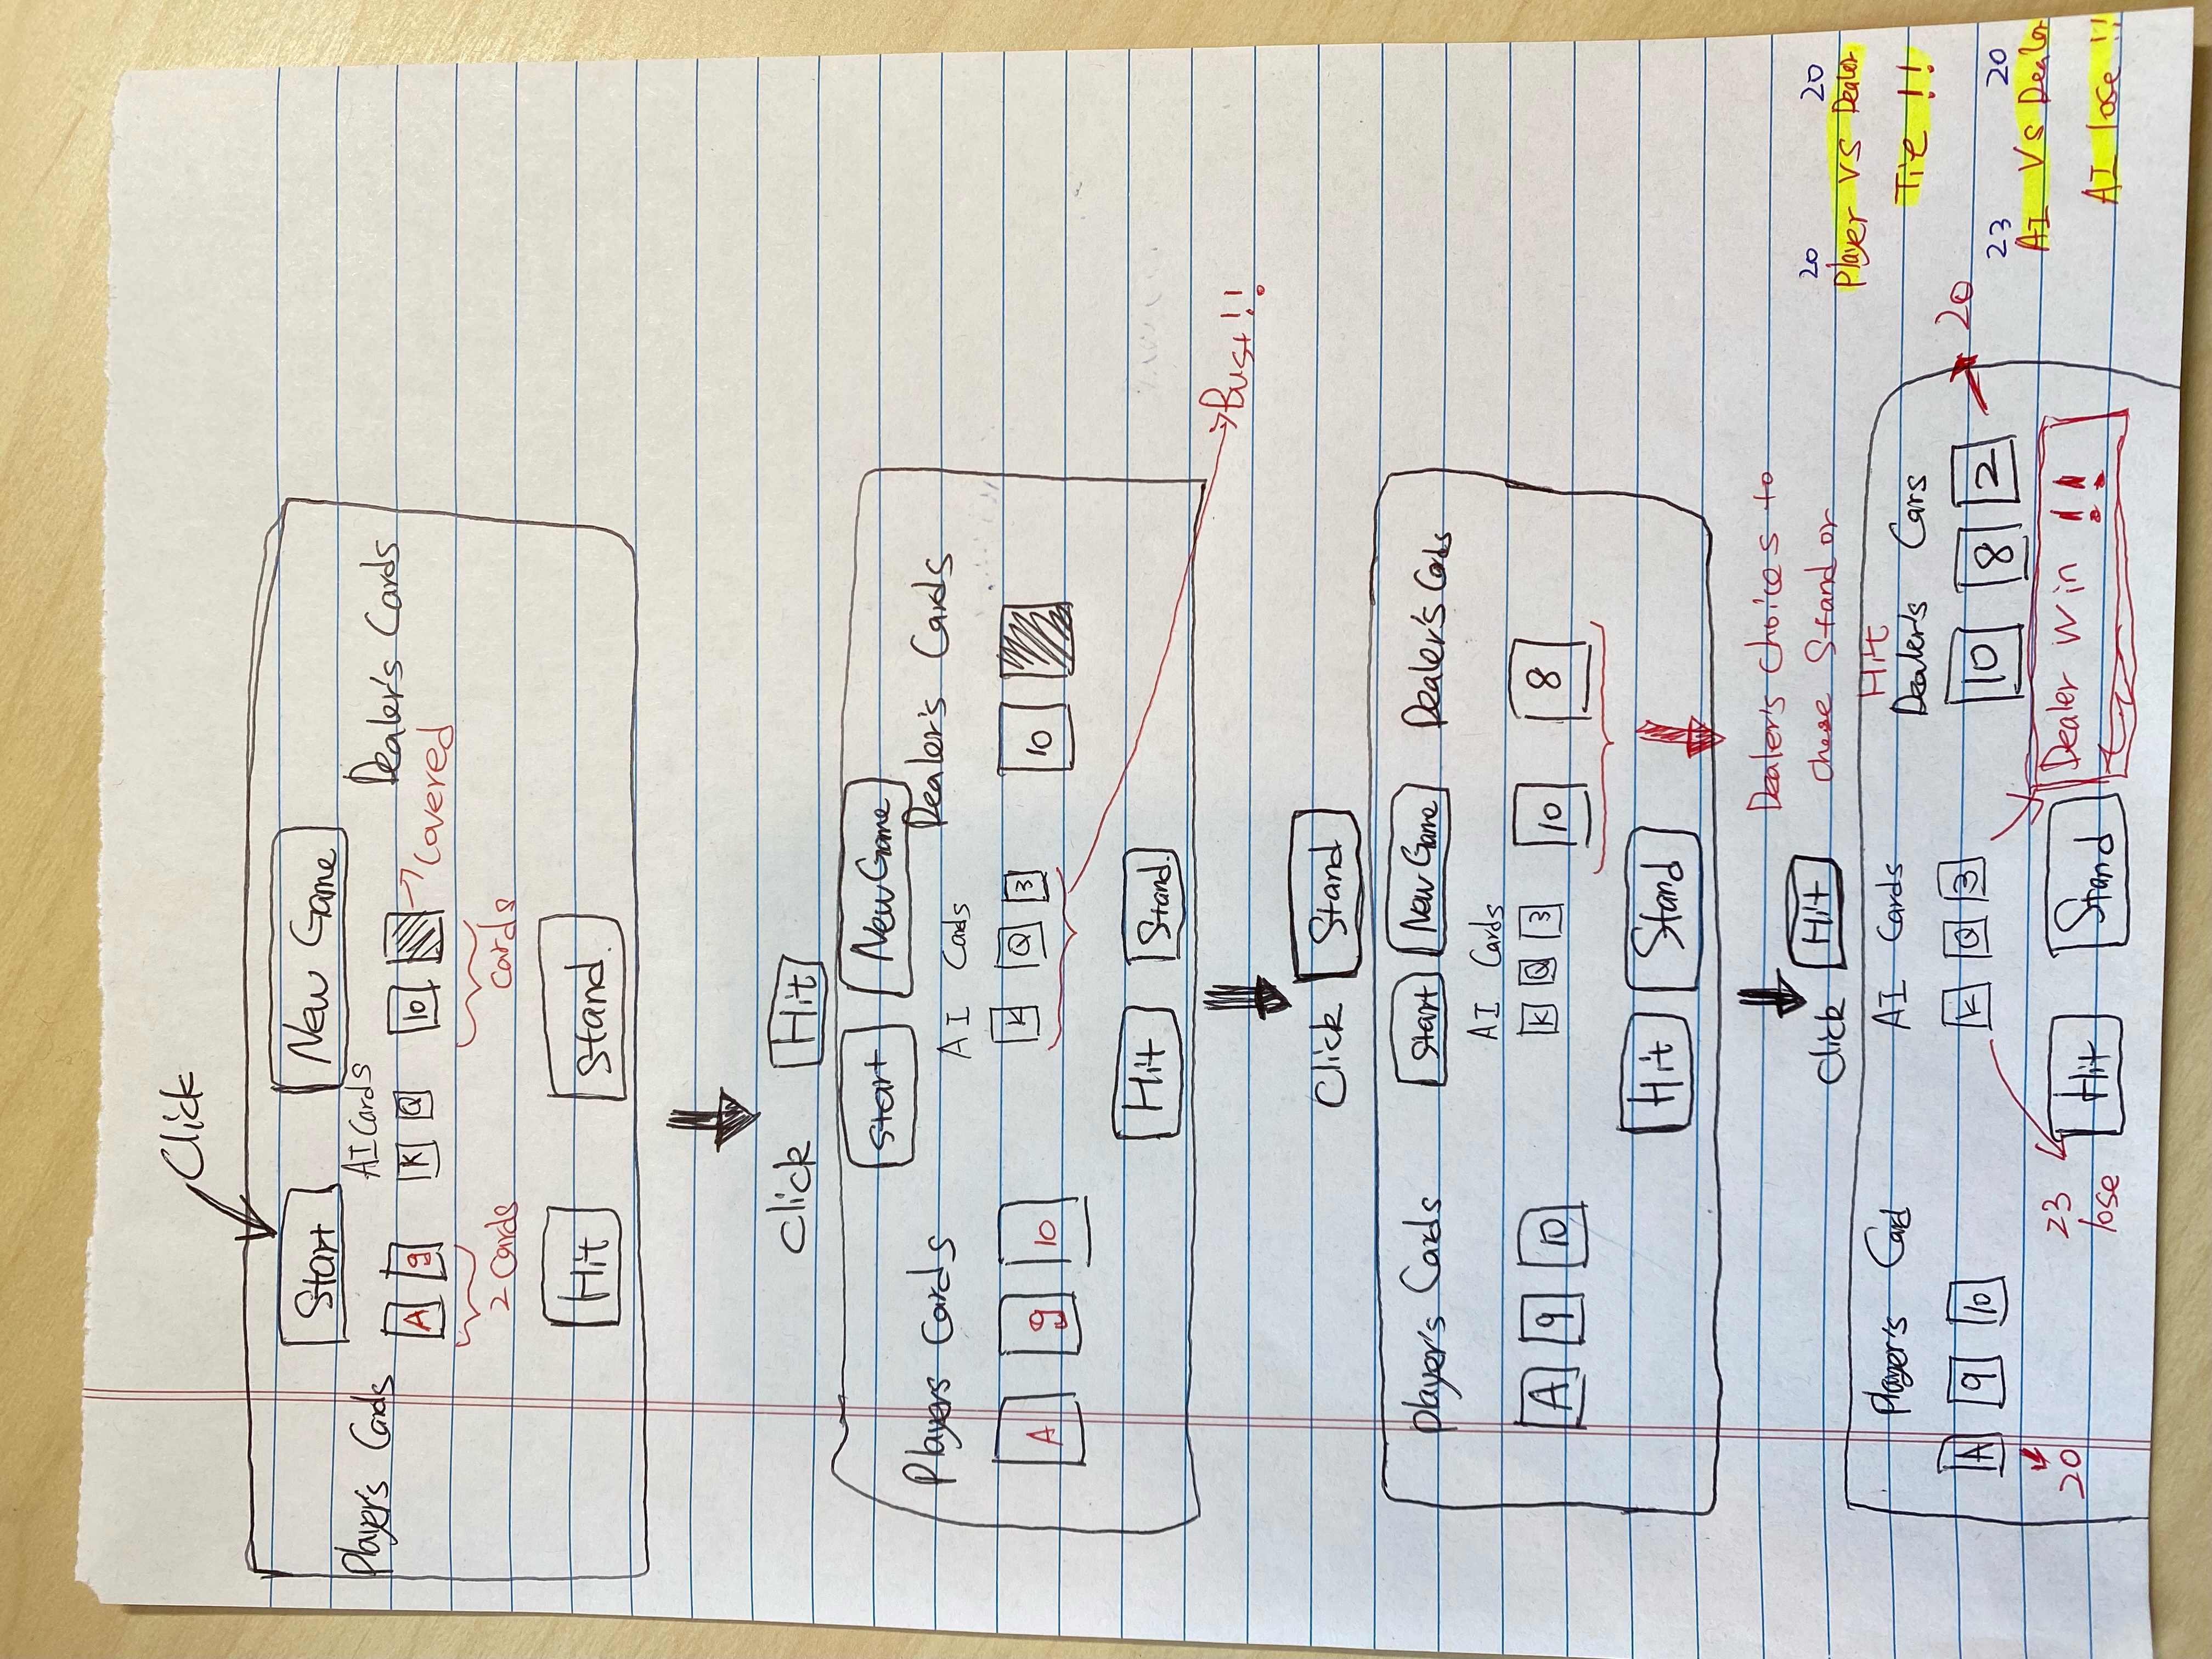 Click
Start New Game
Player's Cards AI Cards Dealer's Cards
A 9 K Q 10 Covered
2 Cards cards
Hit Stand.
Click Hit
Start New Game
Players Cards AI Cards Dealer's Cards
A 9 10 K Q 3 10
Hit Stand.
Bust!!
Click Stand
Player's Cards Start New Game Dealer's Cards
AI Cards
A 9 10 K Q 3 10 8
Hit Stand
Dealer's choices to
chose Stand or
Hit
Click Hit
Player's Card AI Cards Dealer's Cars
A 9 10 K Q 3 10 8 2 20
20 23
lose
Hit Stand Dealer Win !!
20 20
Player VS Dealer
Tie !!
23 20
AI VS Dealer
AI lose !!